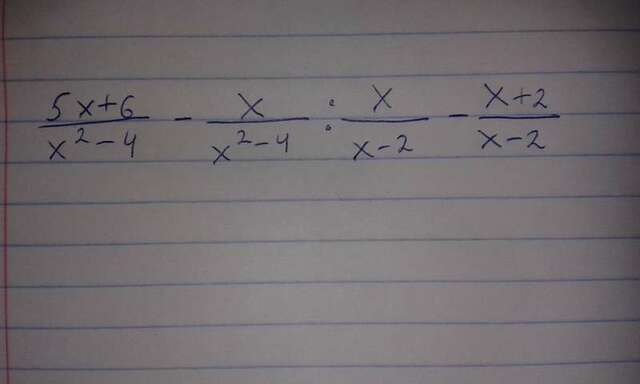 (5x+6)/(x²-4) - x/(x²-4) : x/(x-2) - (x+2)/(x-2)